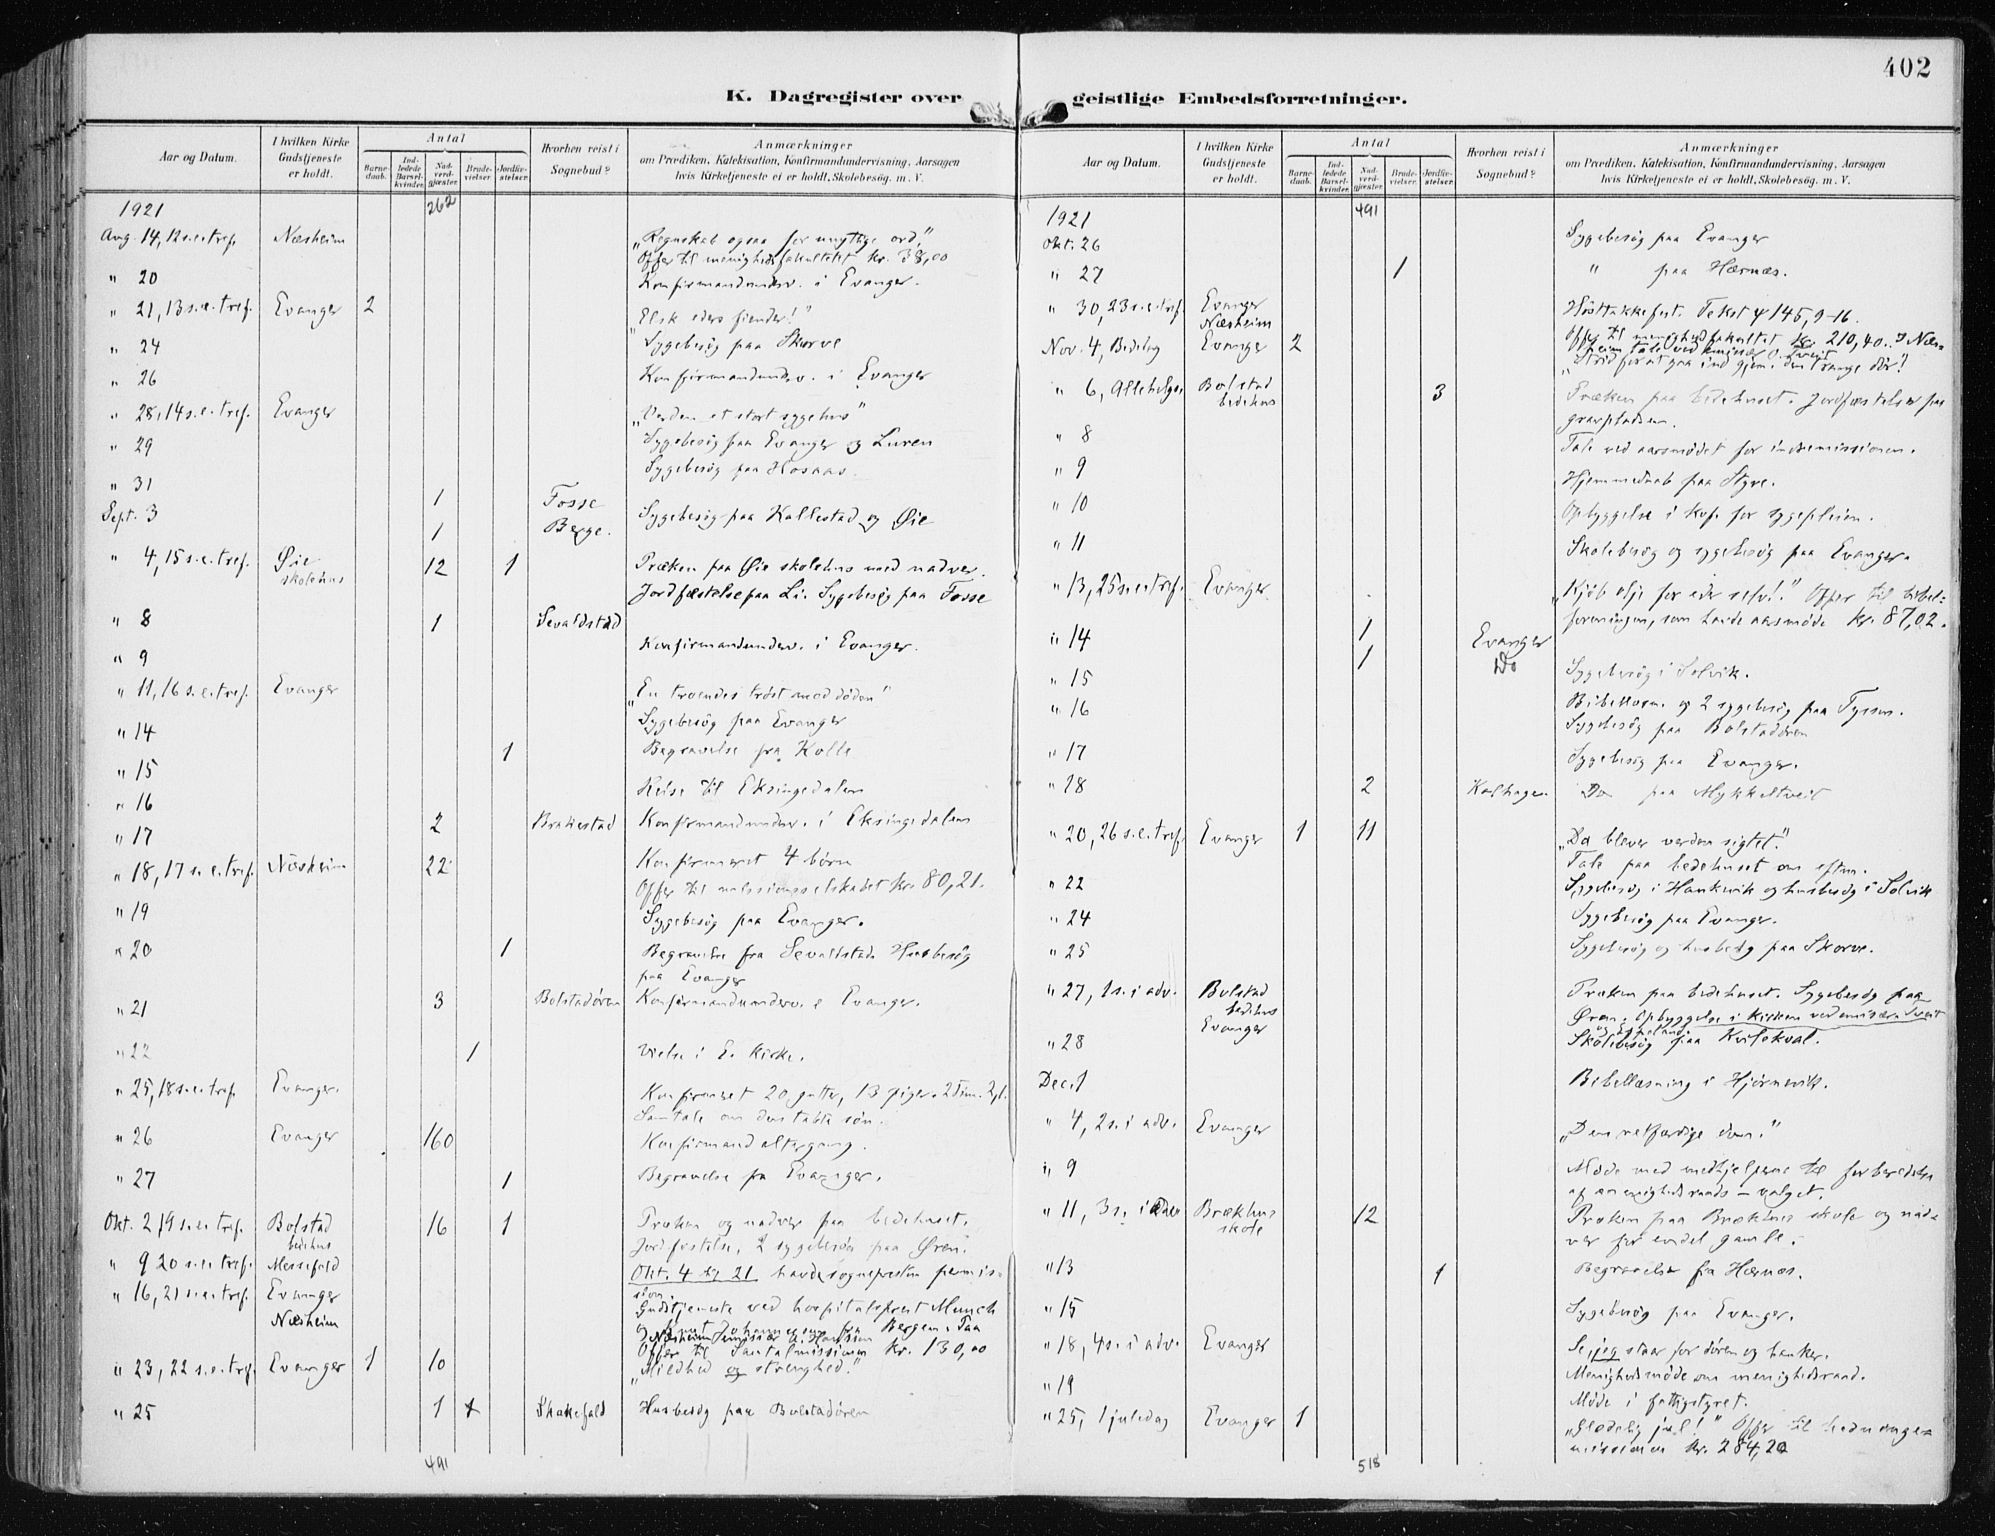 402
K. Dagregister over geistlige Embedsforretninger.
Aar og Datum. | I hvilken Kirke Gudstjeneste er holdt. | Antal | Barnedaab. | Indledede Barselkvinder. | Nadverdgjæster. | Brudevielser. | Jordfæstelser. | Hvorhen reist i Sognebud? | Anmærkninger om Prædiken, Katekisation, Konfirmandundervisning, Aarsagen hvis Kirketjeneste ei er holdt, Skolebesøg. m. V.
1921 262
Aug. 14, 12 s.e.tref. Næsheim „Regnskab ogsaa for unyttige ord."
Offer til menighedsfakultetet kr. 38,00
" 20 Konfirmandunderv. i Evanger.
" 21, 13 s.e.tref. Evanger 2 „Elsk eders fiender!"
" 24 Sygebesøg paa Skorve
" 26 Konfirmandunderv. i Evanger
" 28, 14 s.e.tref. Evanger „Verden et stort sygehus"
" 29 Sygebesøg paa Evanger og Luren
" 31 Sygebesøg paa Hosaas.
Sept. 3 1 Fosse
1 Berge. Sygebesøg paa Kallestad og Øie
" 4, 15 s.e.tref. Øie skolehus 12 1 Præken paa Øie skolehus med nadver.
Jordfæstelse paa Li. Sygebesøg paa Fosse
" 8 1 Sevaldstad
" 9 Konfirmandunderv. i Evanger.
" 11, 16 s.e.tref. Evanger „En troendes trøst mod døden"
" 14 Sygebesøg paa Evanger
" 15 1 Begravelse fra Kolle
" 16 Reise til Eksingedalen
" 17 2 Brakestad Konfirmandunderv. i Eksingedalen
" 18, 17 s.e.tref. Næsheim 22 Konfirmeret 4 børn
Offer til missionsselskabet kr. 80,21.
" 19 Sygebesøg paa Evanger.
" 20 1 Begravelse fra Sevaldstad. Husbesøg
paa Evanger
" 21 3 Bolstadøren Konfirmandunderv. i Evanger.
" 22 1 Vielse i E. kirke.
" 25, 18 s.e.tref. Evanger. Konfirmeret 20 gutter, 13 piger.
Samtale om den tabte søn.
" 26 Evanger 160 Konfirmandaltergang.
" 27 1 Begravelse fra Evanger.
Okt. 2, 19 s.e.tref. Bolstad bedehus 16 1 Præken og nadver paa bedehuset.
Jordfæstelse, 2 sygebesøg paa Øren.
" 9 20 s.e.tref. Messefald Okt. 4 til 21 havde sognepresten permission.
" 16, 21 s.e.tref. Evanger Gudstjeneste ved hospitalsprest Munch
Næsheim fra Bergen. Paa
Næsheim emissær Hansson
Offer til Santalmissionen kr. 130,00
" 23, 22 s.e.tref. Evanger 1 10 „Mildhed og strenghed."
" 25 1 Skakefald Husbesøg paa Bolstadøren
491
Aar og Datum. | I hvilken Kirke Gudstjeneste er holdt. | Antal | Barnedaab. | Indledede Barselkvinder. | Nadverdgjæster. | Brudevielser. | Jordfæstelser. | Hvorhen reist i Sognebud? | Anmærkninger om Prædiken, Katekisation, Konfirmandundervisning, Aarsagen hvis Kirketjeneste ei er holdt, Skolebesøg. m. V.
1921 491
Okt. 26 Sygebesøg paa Evanger
" 27 1 " paa Hærnæs.
" 30, 23 s.e.tref. Evanger Høsttakkefest. Tekst ψ 145, 9-16.
Næsheim Offer til menighedsfakultet kr. 210,40. I Næsheim tale ved emissær O. Tveit
Nov. 4, Bededag Evanger 2 „Strid for at gaa ind gjem. den trange dør!
" 6, Allehelgen Bolstad bedehus 3 Præken paa bedehuset. Jordfæstelser paa
gravpladsen.
" 8 Tale ved aarsmødet for indremissionen.
" 9 Hjemmedaab paa Styve.
" 10 Opbyggelse i for sygepleien.
" 11 Skolebesøg og sygebesøg paa Evanger.
" 13, 25 s.e.tref. Evanger „Kjøb olje for eder selv!" Offer til bibelforeningen, som havde aarsmøde kr. 87,02.
" 14 1 Evanger
" 15 1 Do Sygebesøg i Solvik.
" 16 Bibellæsn. og 2 sygebesøg paa Tyssen.
Sygebesøg paa Bolstadøren
" 17 Sygebesøg paa Evanger.
" 18 2 Kalhagen Do paa Mykkeltveit
" 20, 26 s.e.tref. Evanger 1 11 „Da blever verden sigtet."
Tale paa bedehuset om eftm.
" 22 Sygebesøg i Hankvik og husbesøg i Solvik
" 24 Sygebesøg paa Evanger.
" 25 Sygebesøg og husbesøg paa Skorve.
" 27, 1 s. i adv. Bolstad bedehus Præken paa bedehuset. Sygebesøg paa
Evanger Øren. Opbyggelse i kirken ved emissær Tveit
" 28 Skolebesøg paa Kvilekval.
Dec. 1 Bibellæsning i Hjørnevik.
" 4, 2 s. i adv. Evanger „Den retfærdige dom."
" 9 Møde med medhjelperne til forberedelse
af menighedsraads-valget.
" 11, 3 s. i adv. Brækhus skole 12 Præken paa Brækhus skole og nadver for endel gamle.
" 13 1 Begravelse fra Hærnæs.
" 15 Sygebesøg paa Evanger.
" 18, 4 s. i adv. Evanger Se, jeg staar for døren og banker.
" 19 Menighedsmøde om menighedsraad.
Møde i fattigstyret.
" 25, 1 juledag Evanger 1 „Glædelig jul!" Offer til hedningemissionen kr. 284,20
518